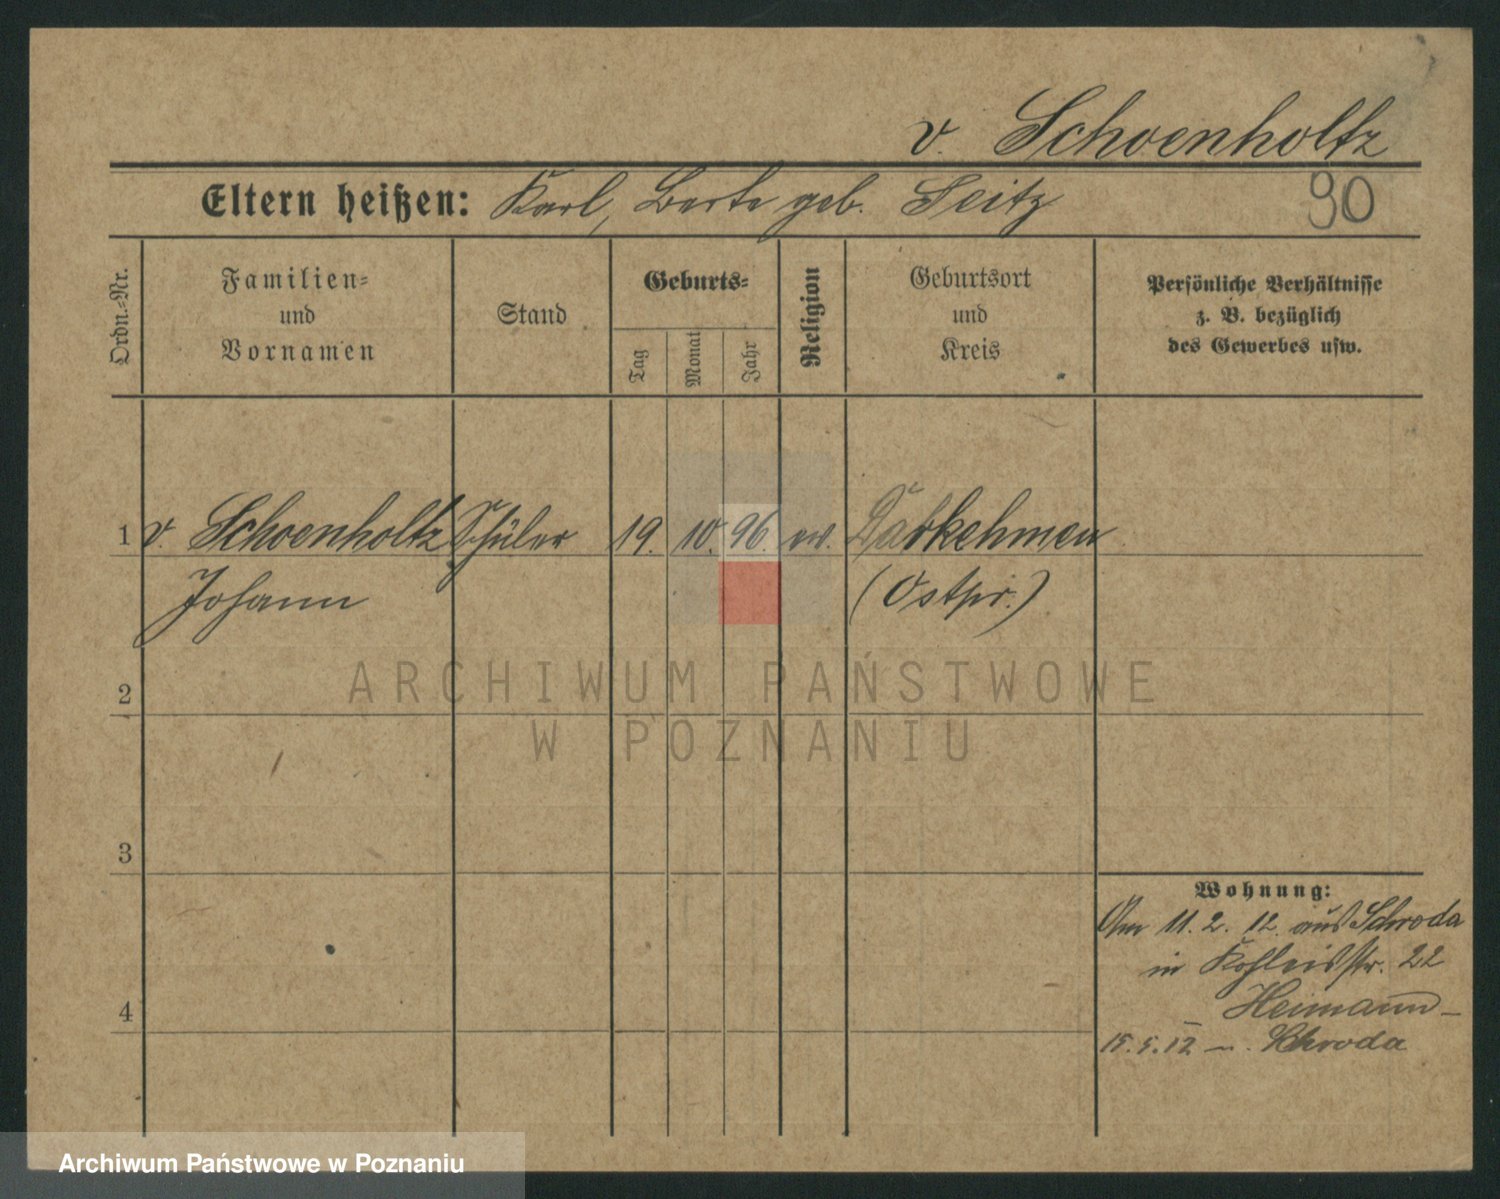 v. Schoenholtz
Eltern heißen: Karl, Berta geb. Seitz
90
Ordn.-Nr.
Familien-
und
Vornamen
Stand
Geburts-
Tag
Monat
Jahr
Religion
Geburtsort
und
Kreis
Persönliche Verhältnisse
z. B. bezüglich
des Gewerbes usw.
1 v. Schoenholtz Schüler 19. 10. 96. ev. Darkehmen
Johann (Ostpr.)
ARCHIWUM PAŃSTWOWE
W POZNANIU
2
3
4
Wohnung:
Am 11. 2. 12. aus Schroda
in Kohleisstr. 22
Heimann
15. 5. 12 Schroda
Archiwum Państwowe w Poznaniu